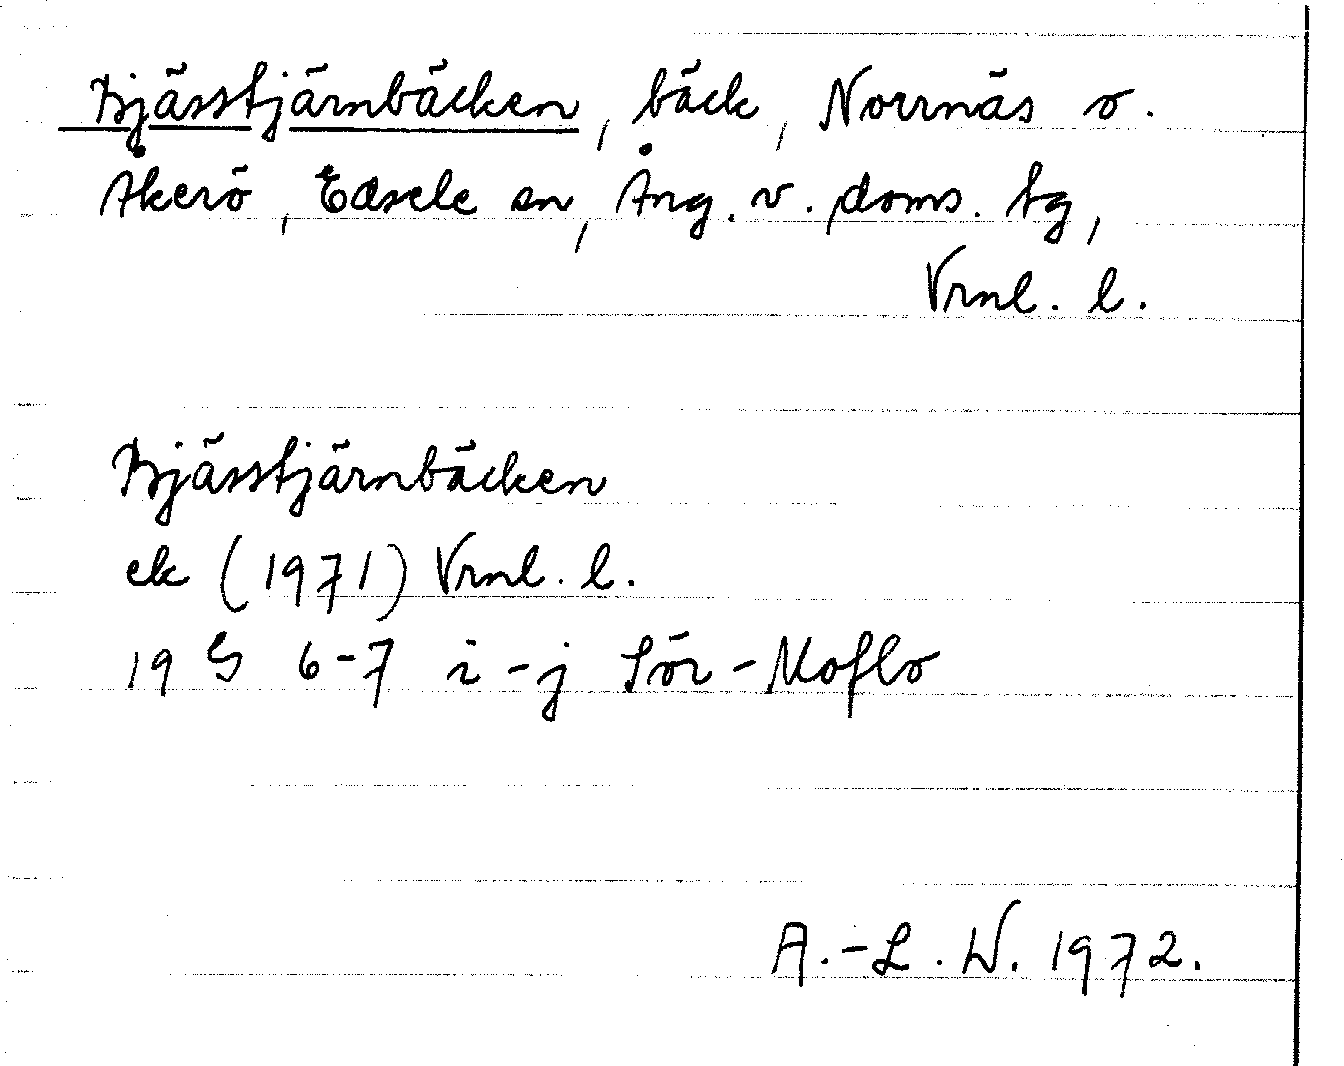 Bjässtjärnbäcken, bäck, Norrnäs o.
Åkerö, Edsele sn, Ång. v. doms. tg,
Vrnl. l.
Bjässtjärnbäcken
ek (1971) Vrnl. l.
19 G 6-7 i-j Sör-Moflo
A.-L. W. 1972.